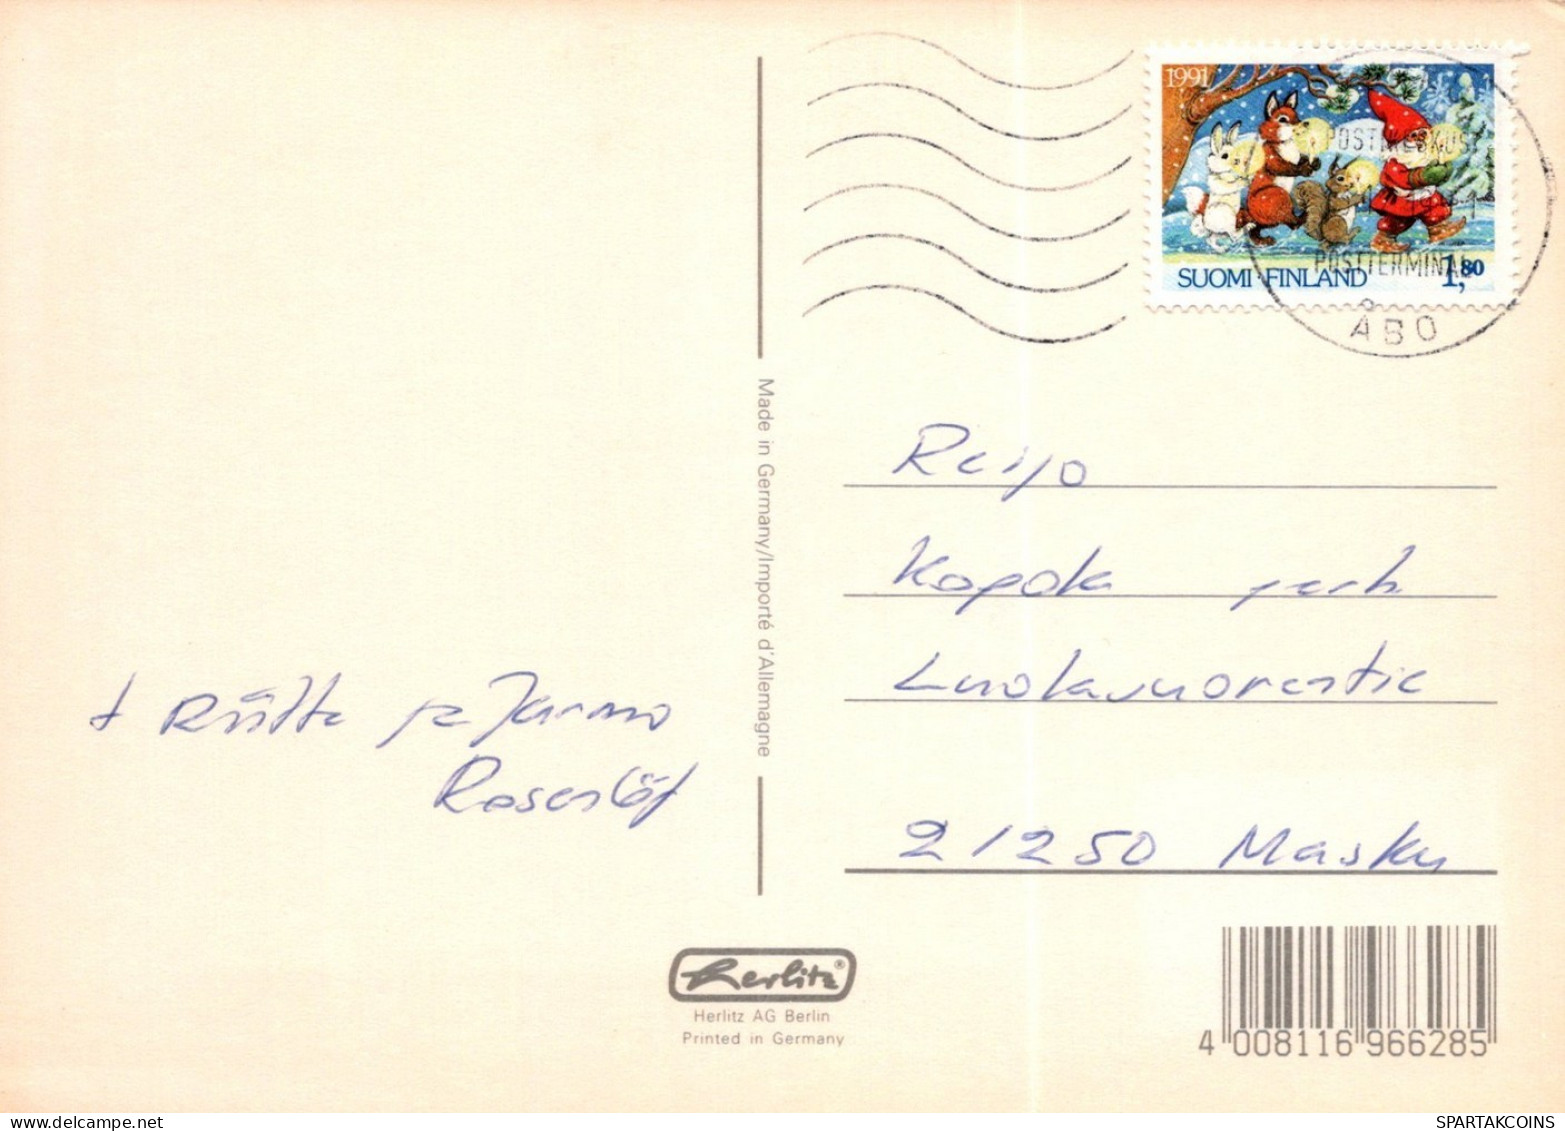 1991
POSTIKESKUS
POSTTERMINAL
SUOMI·FINLAND 1,80
ÅBO
Made in Germany/Importé d'Allemagne
Reijo
Kopola perh.
Luolavuorentie
21250 Masku
+ Riitta ja Jarmo
Rosenlöf
Herlitz®
Herlitz AG Berlin
Printed in Germany
4 008116 966285
SPARTAKCOINS.COM